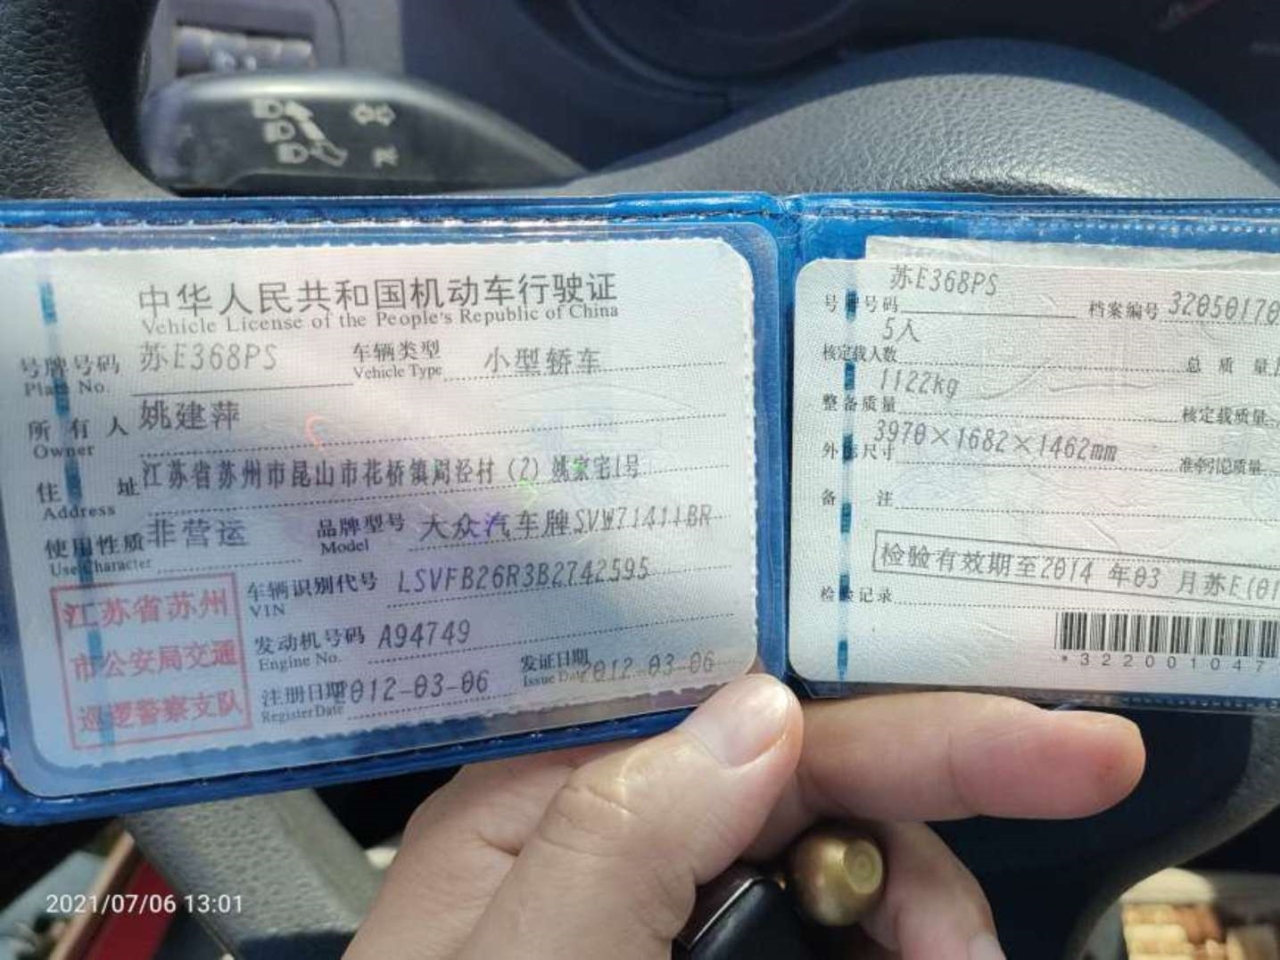 中华人民共和国机动车行驶证
Vehicle License of the People's Republic of China
号牌号码 苏E368PS 车辆类型 小型轿车
Plate No. Vehicle Type
所有人 姚建萍
Owner
住址 江苏省苏州市昆山市花桥镇周泾村(2)姚家宅1号
Address
使用性质 非营运 品牌型号 大众汽车牌SVW71411BR
Use Character Model
江苏省苏州
市公安局交通
巡逻警察支队
车辆识别代号 LSVFB26R3B2742595
VIN
发动机号码 A94749
Engine No.
注册日期 2012-03-06 发证日期 2012-03-06
Register Date Issue Date
号牌号码 苏E368PS 档案编号 32050170
核定载人数 5人 总质量
整备质量 1122kg 核定载质量
外廓尺寸 3970×1682×1462mm 准牵引总质量
备注
检验有效期至2014年03月苏E(01
检验记录
*322001047
2021/07/06 13:01